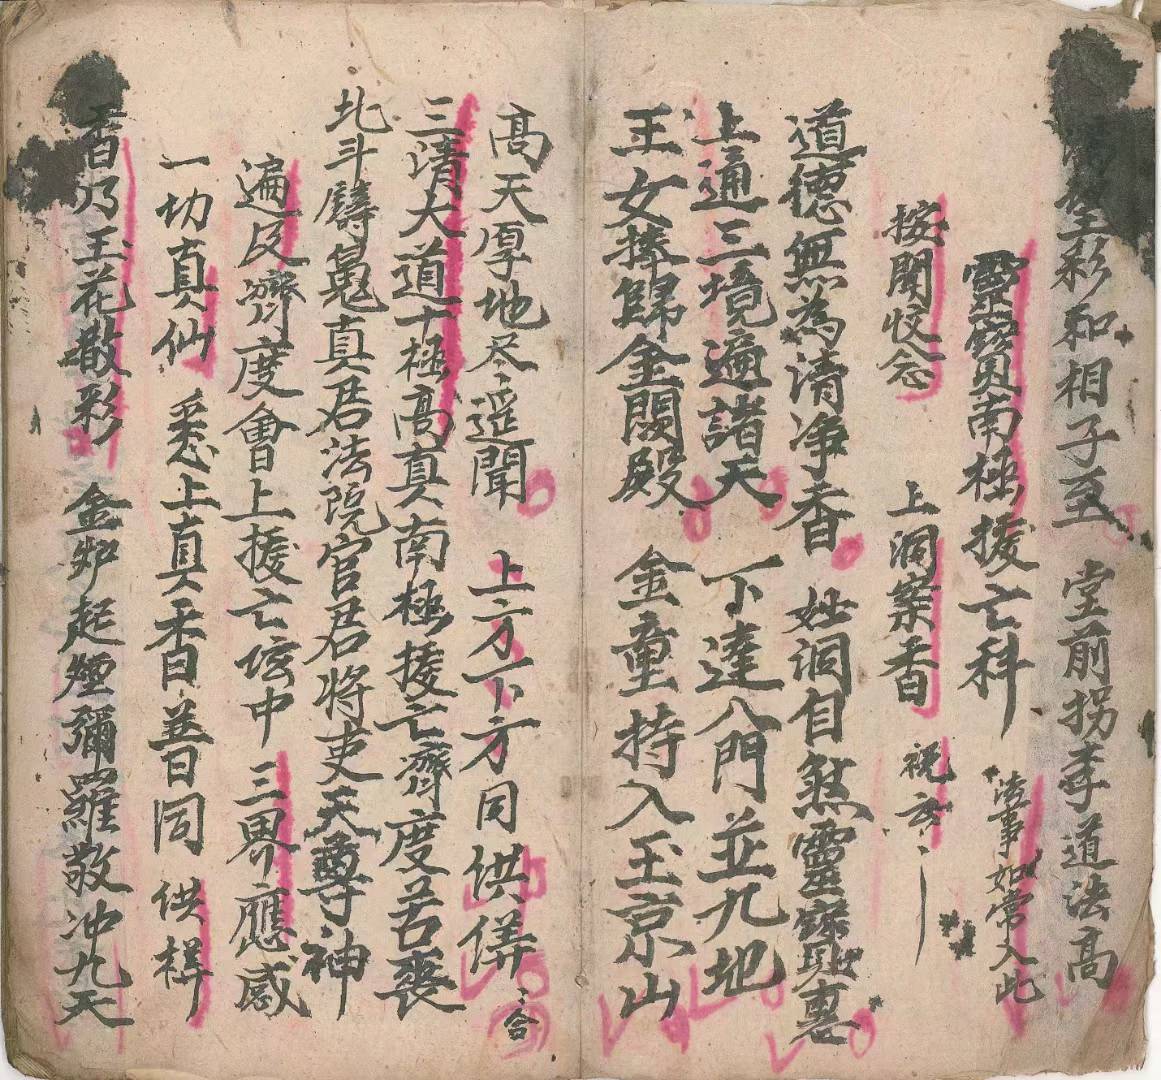 彩和相子至 堂前拐李道法高
靈寶南極援亡科 法事如常入此
按聞收念 上洞案香 祝云
道德無為清净香 妙洞自然靈寳惠
上通三境遍諸天 下達八門並九地
王女捧歸金闕殿 金童持入玉京山
高天厚地尽遥聞 上方下方同供俻 合
三清大道十極高真南極援亡濟度若喪
北斗 真君法院官君将吏天尊神
遍及濟度會上援亡坛中 三界應感
一切真仙 悉上真香普同供養
香乃玉花散彩 金炉起煙彌羅敬冲九天